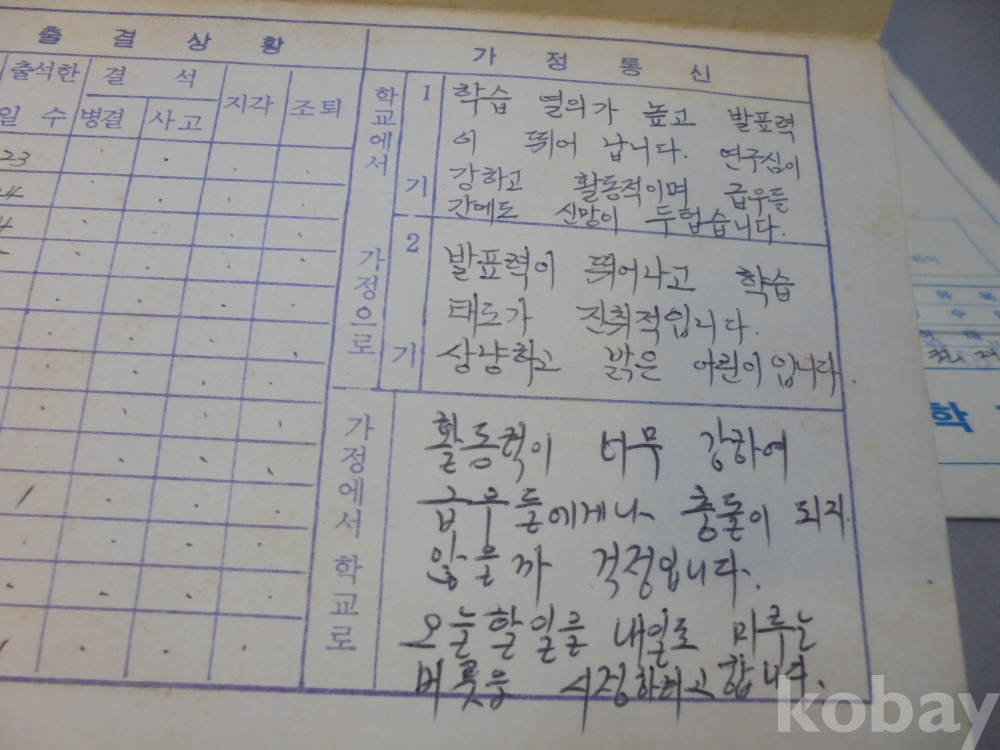 출 결 상 황
가 정 통 신
출석한 결 석 지각 조퇴
일 수 병결 사고
23
24
4
1
학교에서 가정으로
1 기
학습 열의가 높고 발표력
이 뛰어 납니다. 연구심이
강하고 활동적이며 급우들
간에도 신망이 두텁습니다.
2 기
발표력이 뛰어나고 학습
태도가 진취적입니다.
상냥하고 밝은 어린이 입니다.
가정에서 학교로
활동력이 너무 강하여
급우들에게나 충돌이 되지
않을까 걱정입니다.
오늘할일를 내일로 미루는
버릇을 시정하려고 합니다.
학
kobay